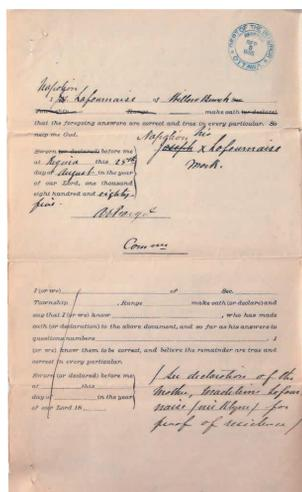 DEPT OF THE INTERIOR
SEP
5
1885
Napoléon
I, Lafournaise of Willow Bunch
Township Range make oath (or declare)
that the foregoing answers are correct and true in every particular. So
help me God.
Napoléon his
Joseph x Lafournaise
mark.
Sworn (or declared) before me
at Regina this 25th
day of August in the year
of our Lord, one thousand
eight hundred and eighty
five.
I (or we) of Sec.
Township , Range make oath (or declare) and
say that I (or we) know , who has made
oath (or declaration) to the above document, and so far as his answers to
questions numbers , I
(or we) know them to be correct, and believe the remainder are true and
correct in every particular.
Sworn (or declared) before me
at this
day of in the year
of our Lord 18
(See declaration of the
Mother, Madeleine Lafour
naise (née Klyne) for
proof of residence)